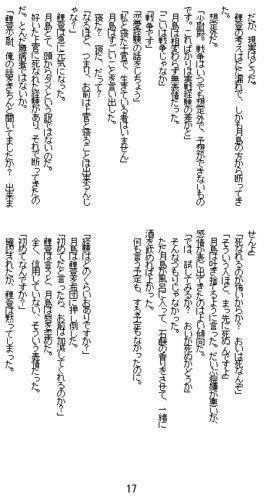 だが、現実はどうだ。
鯉登の考えはただ漏れで、しかも月島の方から断ってき
た。
想定外だ。
「少尉殿。戦争はいつでも想定外で、予想ができないもの
です。こればかりは実戦経験の差かと」
月島は相変わらず無表情だった。
「こいは戦争じゃなか」
「戦争です」
「恋愛経験の話をしちょう」
「私と寝た上官で、生きている者はいません」
月島はすごいことを言い出した。
「寝た？　寝た、だって？」
なるほど、つまり、お前は上官と寝ることは出来るんじ
ゃな」
鯉登は急に元気になった。
月島とて、頭からダメという訳ではないのだ。
好いた上官に死なれた経験があり、それで断ってきたの
だ。とんだ臆病者ではないか。
「鯉登少尉、俺の話をきちんと聞いてましたか？　出来ま
せんよ」
「死なれるのが怖いからか？　おいは死なんぞ」
「そういう人ほど、まっ先に死ぬんですよ」
月島は吐き捨てるように言った。だいぶ機嫌が悪いが、
感情が表に出てきたのはよい傾向だ。
「では、試してみるか？　おいが死ぬかどうか」
そんなつもりじゃなかった。
ただ月島が風呂に入って、石鹸の香りをさせて、一緒に
酒を飲めれば上々だった。
何も言う予定も、する予定もなかったのに。
「経験はどのくらいおありですか？」
月島は鯉登を布団に押し倒した。
「初めてだと言ったら、お前は加減してくれるのか？」
鯉登は言うと、月島は唇を歪めた。
全く、信用していない、そういう表情だった。
「初めてなんですか？」
確認されたが、鯉登は黙ってしまった。
17